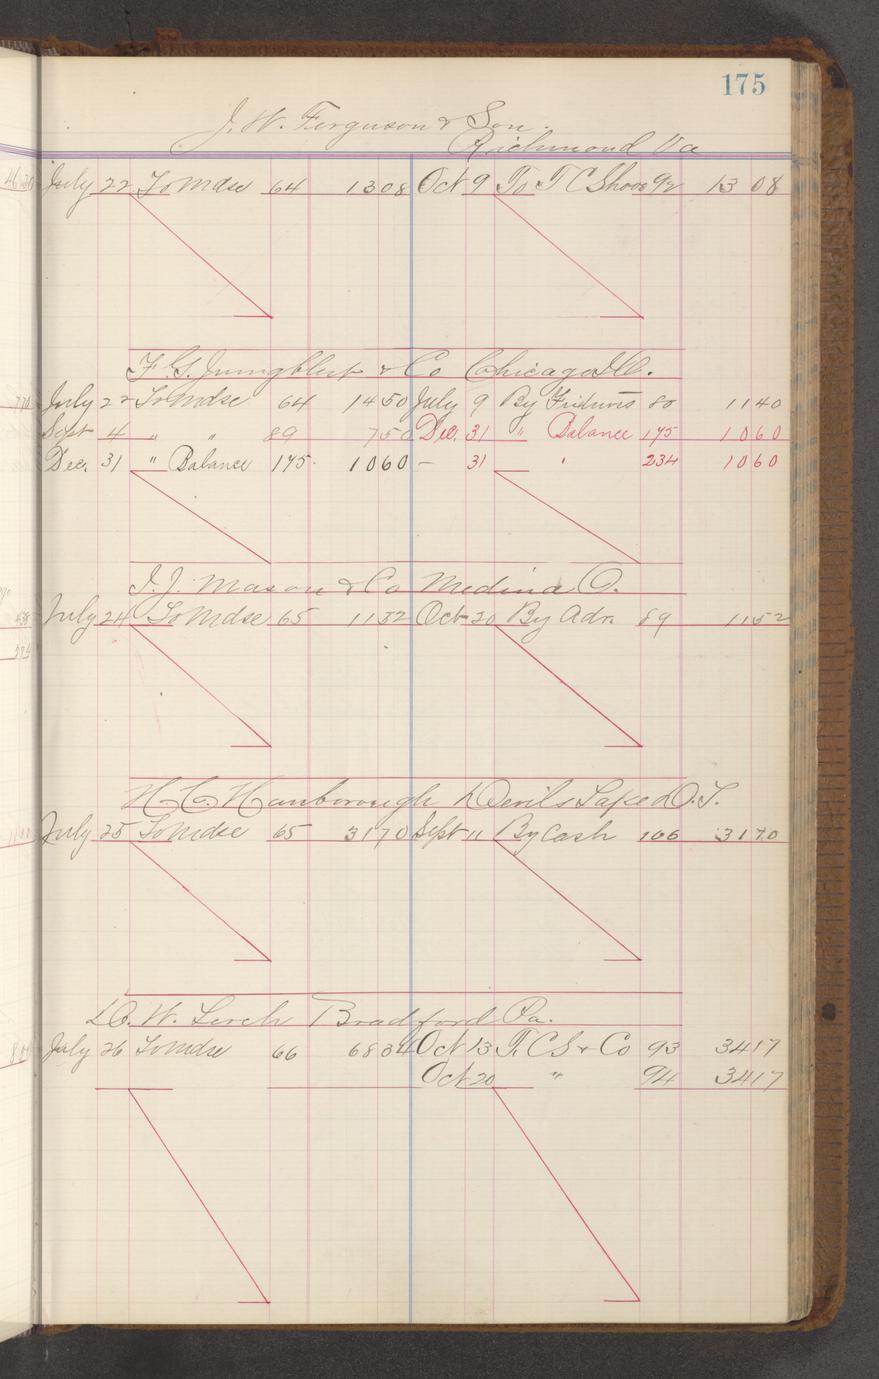 175
J. W. Ferguson & Son.
Richmond Va
July 22 To Mdse 64 13 08 Oct 9 To T C Shoos 92 13 08
F. G. Jungblut & Co Chicago Ill.
July 22 To Mdse 64 14 50 July 9 By 80 11 40
Sept 4 " " 89 7 50 Dec. 31 " Balance 175 10 60
Dec. 31 " Balance 175. 10 60 — 31 " 234 10 60
I. J. Mason & Co Medina O.
July 24 To Mdse 65 11 52 Oct 20 By Adv. 89 11 52
H. C. Hanborough Devils Lake D. T.
July 25 To Mdse 65 31 70 Sept 11 By Cash 106 31 70
D. W. Lerch Bradford Pa.
July 26 To Mdse 66 68 34 Oct 13 T. C S & Co 93 34 17
Oct 20 " 94 34 17